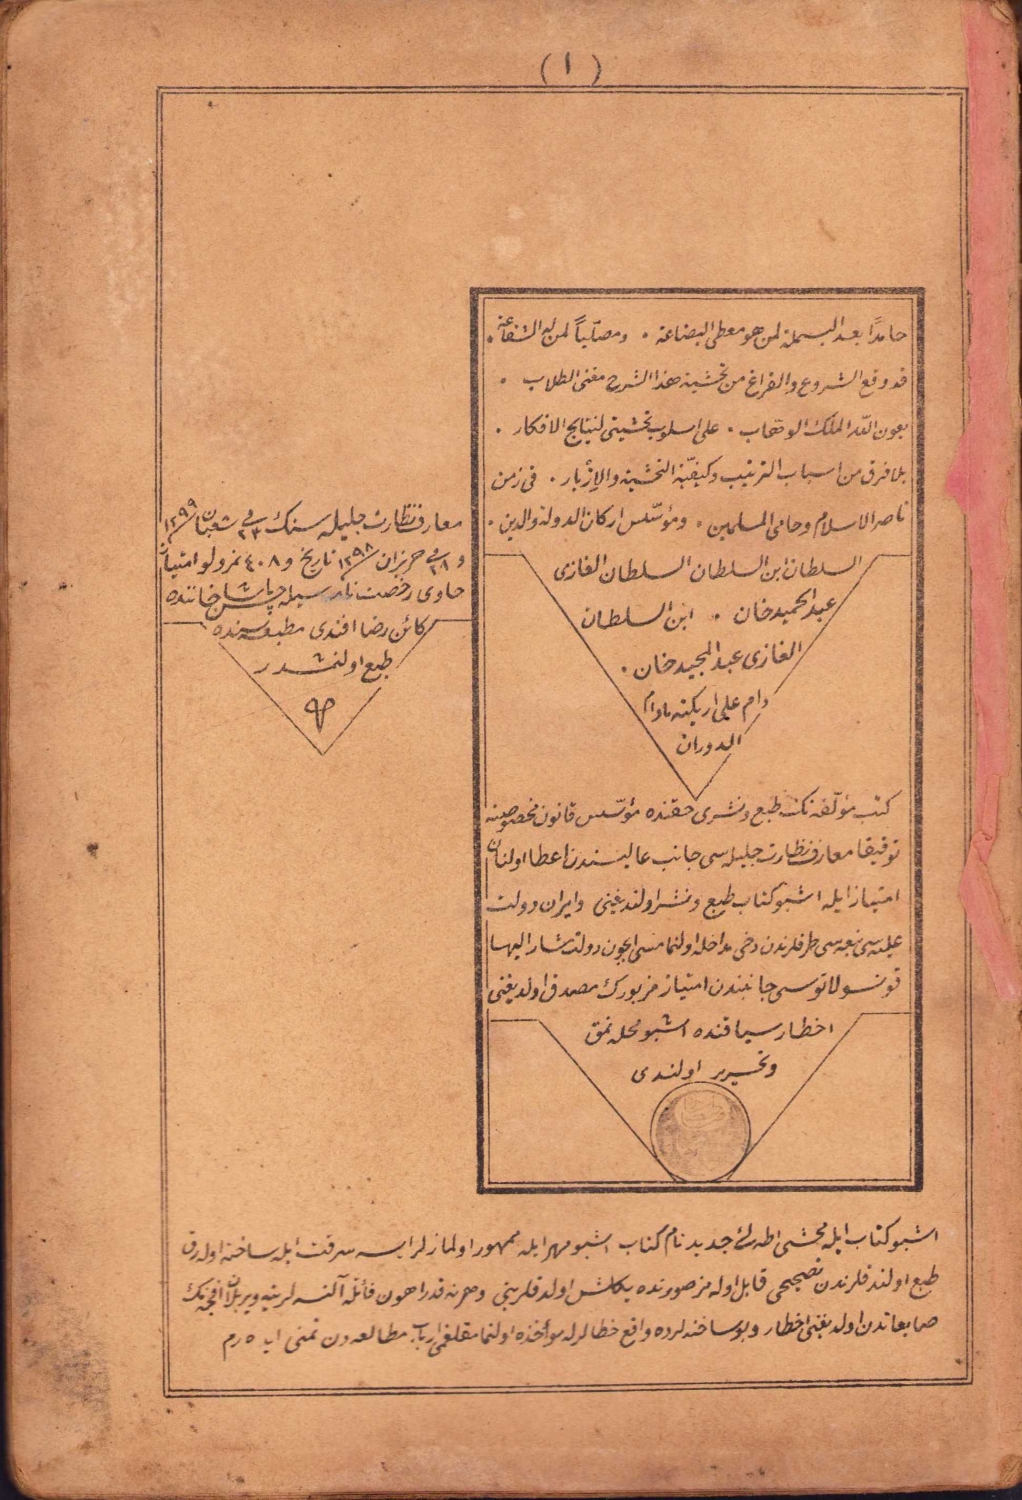 (١)
حامدًا بعد البسملة لمن هو معطى البضاعة . ومصلّياً لمن له الشفاعة .
قد وقع الشروع والفراغ من تحشية هذا الشرح مغنى الطلاب .
بعون الله الملك الوهّاب . على اسلوب تحشيتى لنتايج الافكار .
بلا فرق من اسباب الترتيب وكيفيّة التحشية والإزبار . فى زمن
ناصر الاسلام وحامى المسلمين . ومؤسّس اركان الدولة والدين .
السلطان ابن السلطان السلطان الغازى
عبد الحميد خان . ابن السلطان
الغازى عبد المجيد خان .
دام على اريكته مادام
الدوران
كتب مؤلّفه نك طبع ونشرى حقنده مؤسّس قانون مخصوصنه
توفيقا معارف نظارت جليله سى جانب عاليسندن اعطا اولنان
امتياز ايله اشبو كتاب طبع ونشر اولنديغنى وايران دولت
عليه سى تبعه سى طرفلرندن دخى مداخله اولنمامسى ايچون دولت مشار اليها
قونسولاتوسى جانبندن امتياز مزبورك مصدق اولديغنى
اخطار سياقنده اشبو محله نمق
وتحرير اولندى
معارف نظارت جليله سنك فى ٢٣ شعبان ١٢٩٩
و فى ٢٨ حزيران ١٢٩٨ تاريخ و ٤٠٨ نمرولو امتيازى
حاوى رخصتنامه سيله چاشن خاننده
كائن رضا افندى مطبعه سنده
طبع اولنمشدر
اشبو كتاب ايله محشى اطه لى جديد نام كتاب اشبو مهر ايله ممهور اولمازلر ايسه سرقت ايله ساخته اوله رق
طبع اولندقلرندن تصحيحى قابل اوله مز صورتده ياكلش اولدقلرينى وهر نه قدر اهون فأتله آلنسه لر ينه ويريلان اقچه نك
ضايعاتدن اولديغنى اخطار وبو ساخته لرده واقع خطالرله مؤاخذه اولنمامقلغمى ارباب مطالعه دن تمنى ايده رم